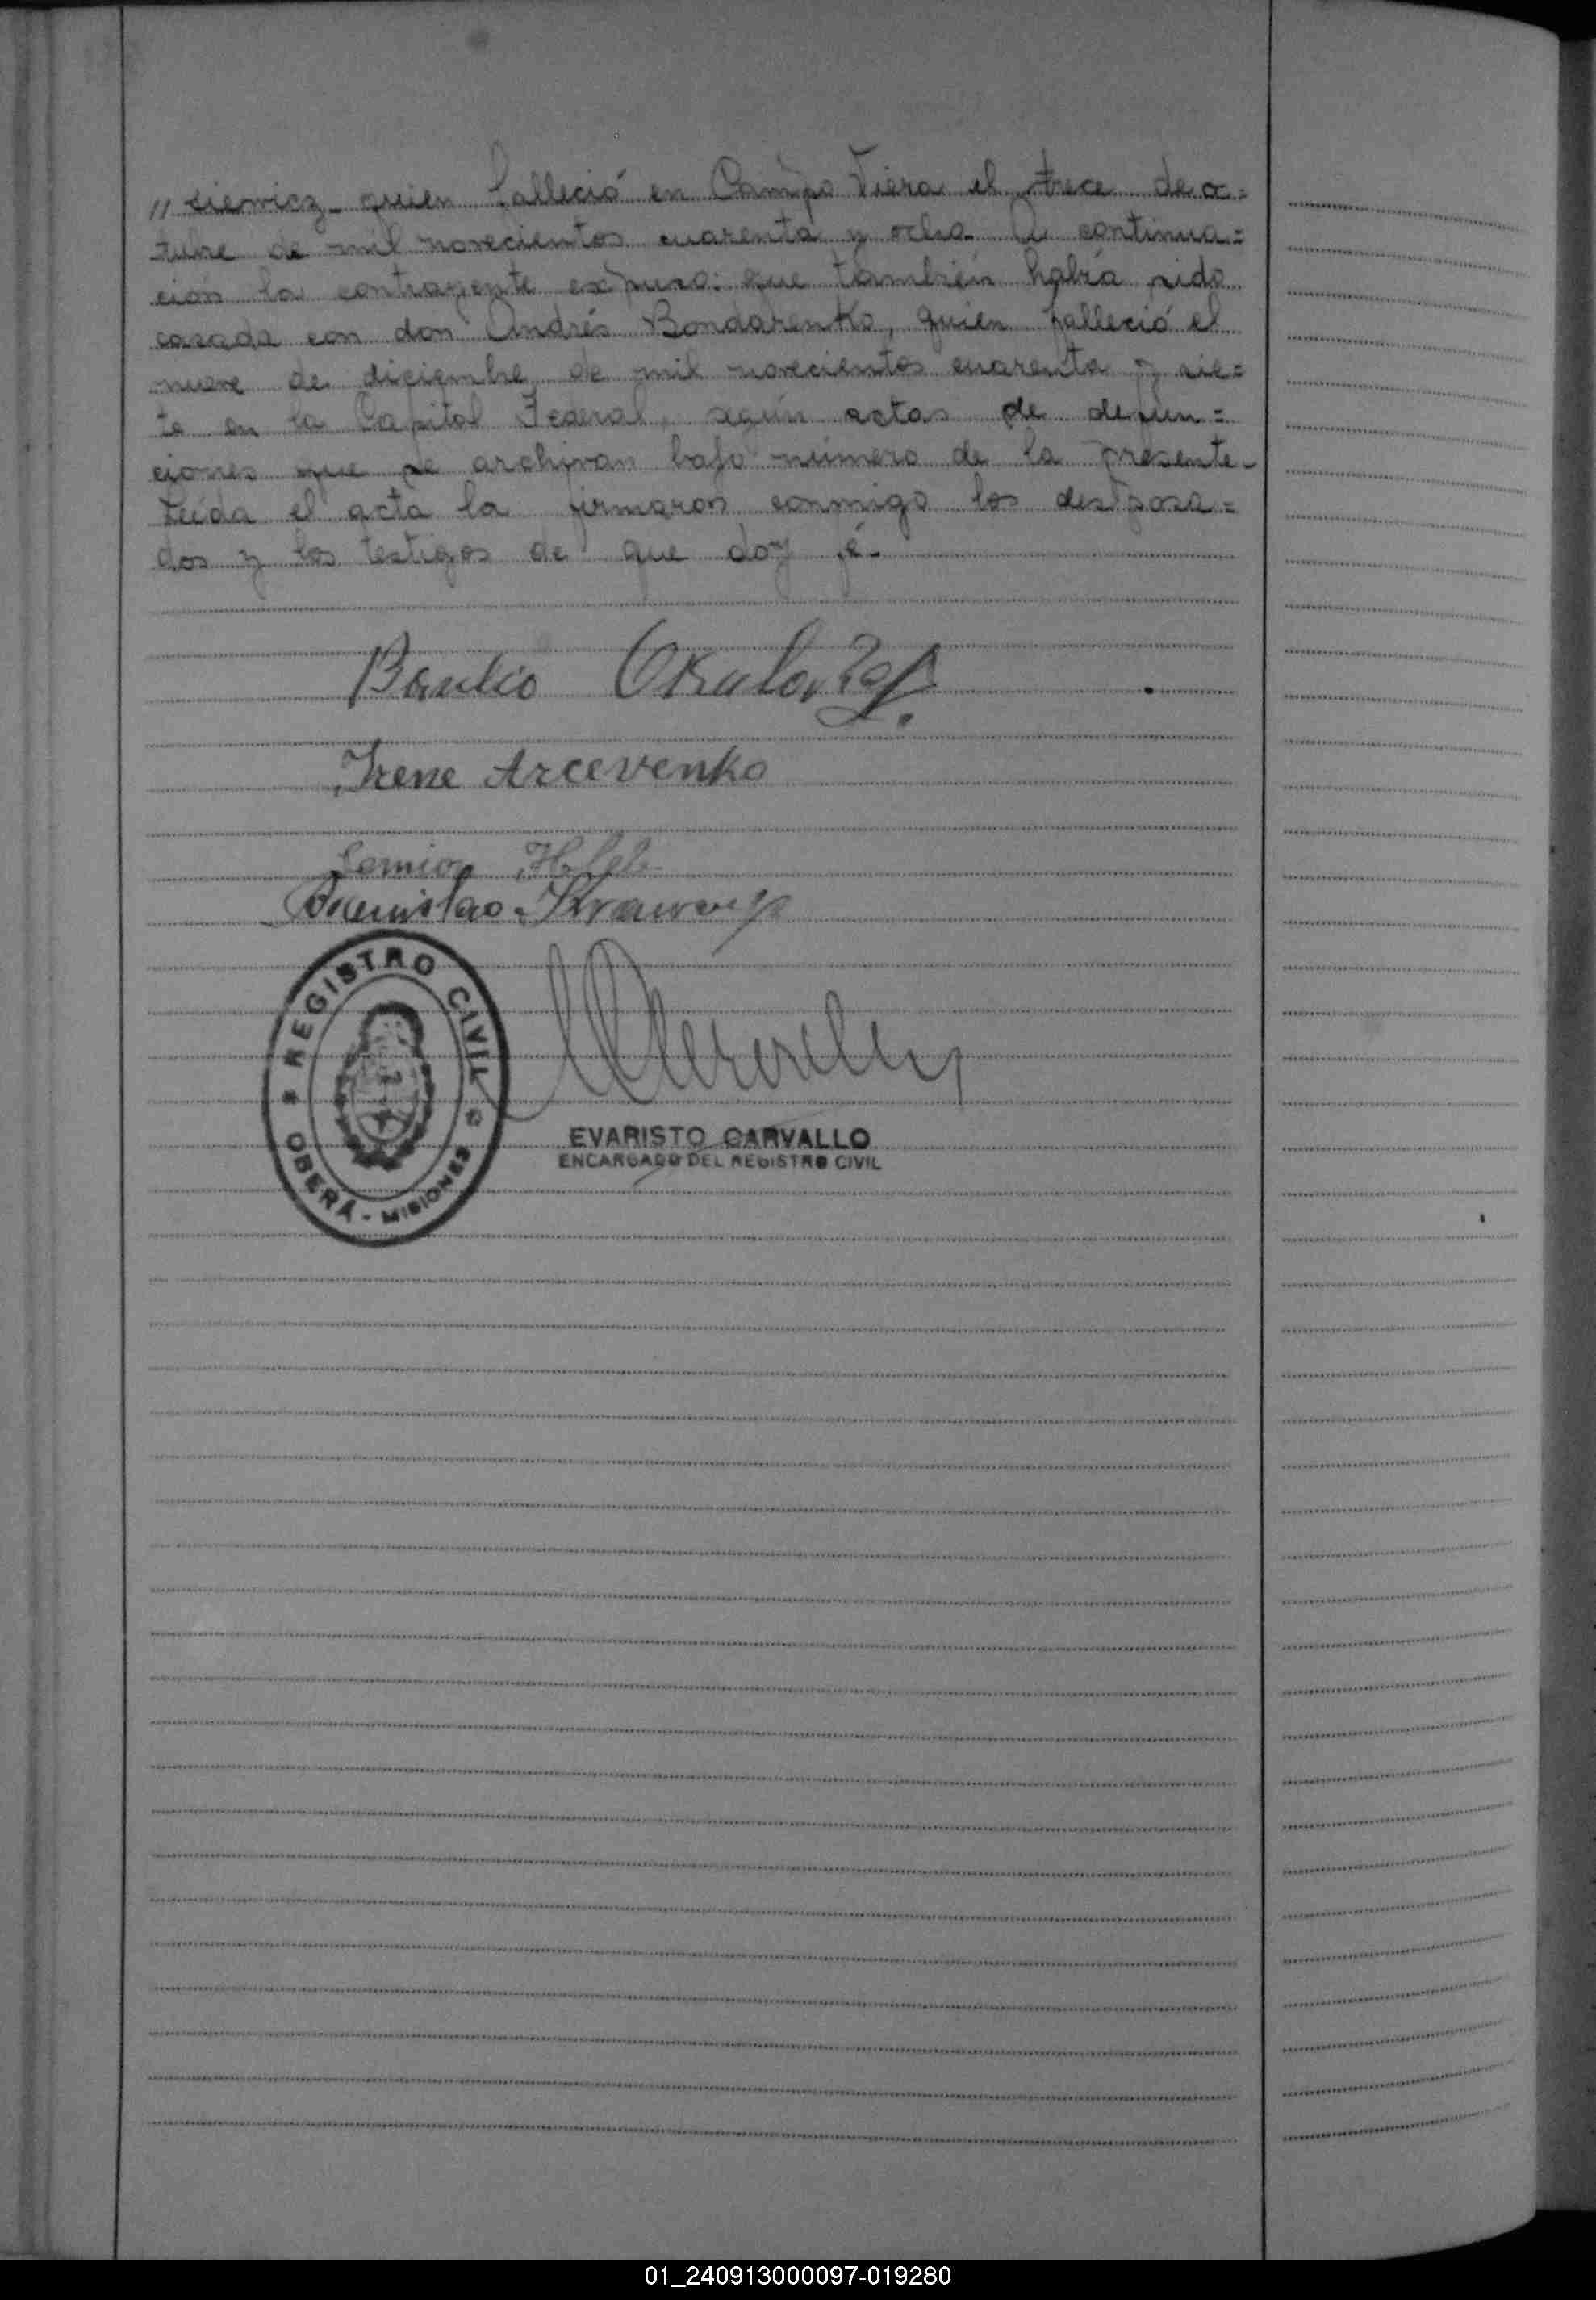 "siewicz - quien falleció en Campo Viera el trece de oc=
tubre de mil novecientos cuarenta y ocho. A continua=
ción la contrayente expuso: que también había sido
casada con don Andrés Bondarenko, quien falleció el
nueve de diciembre de mil novecientos cuarenta y sie=
te en la Capital Federal, según actas de defun=
ciones que se archivan bajo número de la presente-
Leída el acta la firmaron conmigo los desposa=
dos y los testigos de que doy fé.-
Basilio
Irene Arcevenko
REGISTRO CIVIL
OBERÁ - MISIONES
EVARISTO CARVALLO
ENCARGADO DEL REGISTRO CIVIL
01_240913000097-019280